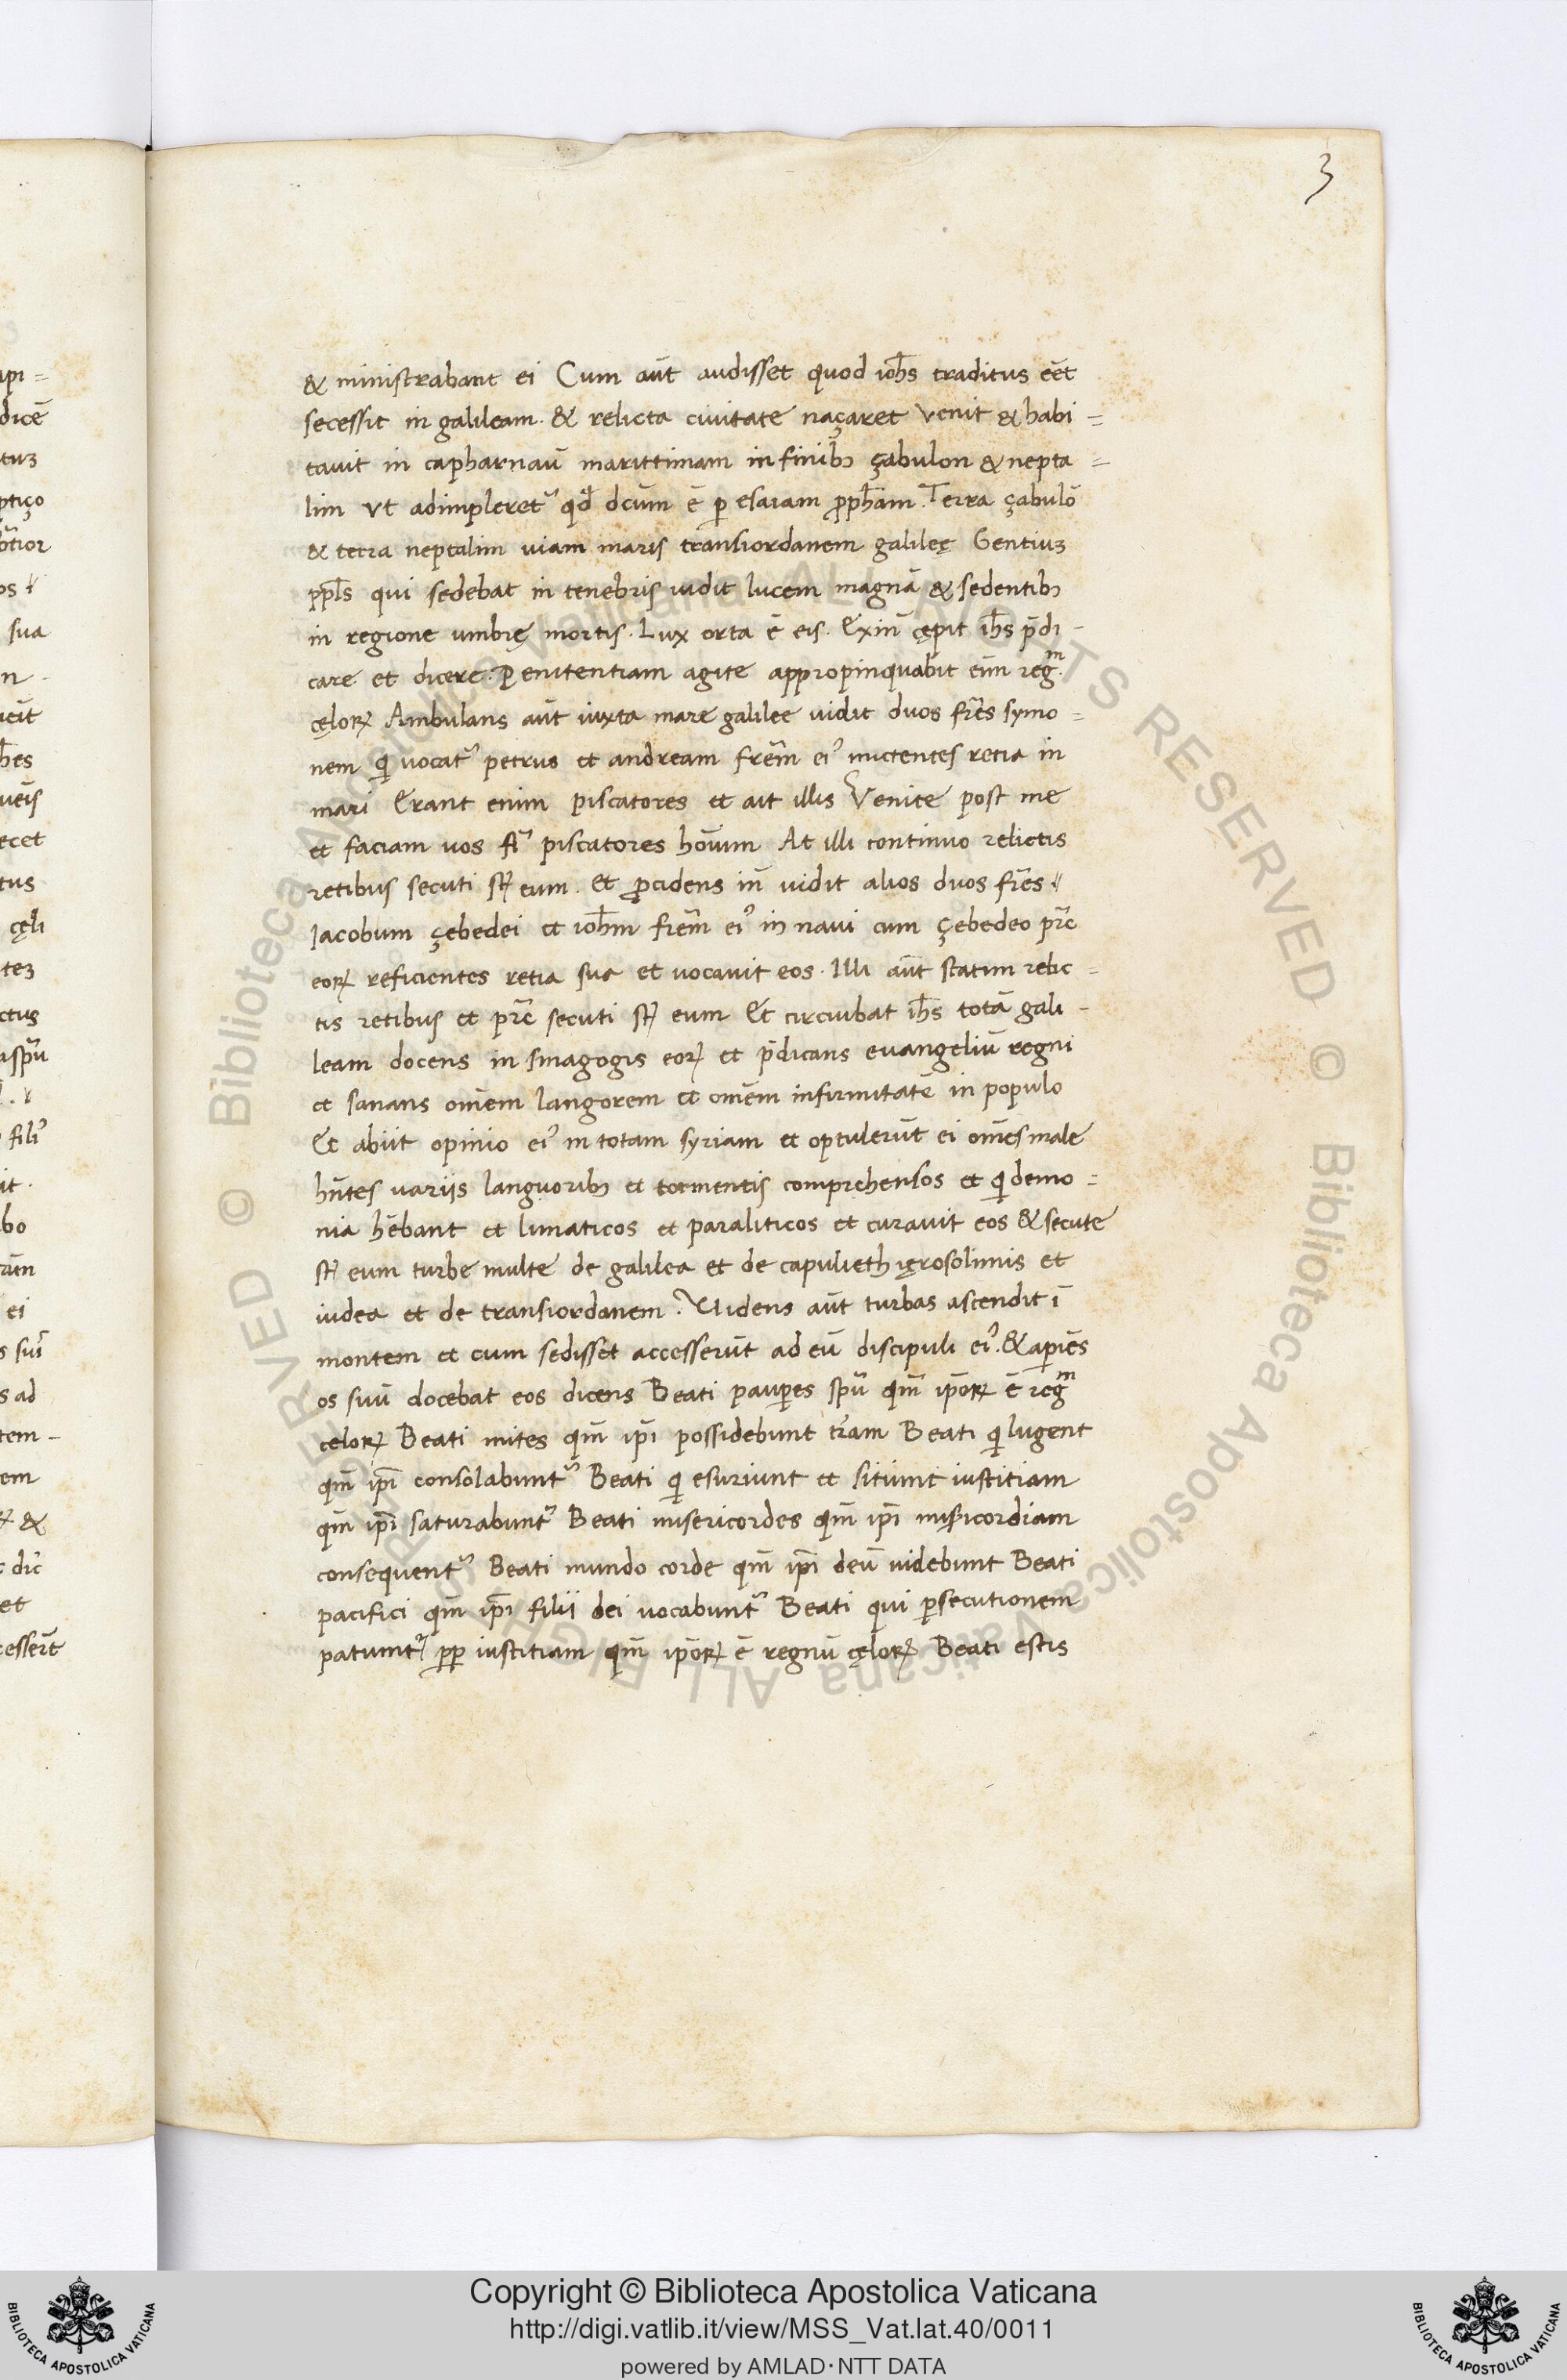 3
& ministrabant ei Cum aūt audisset quod ioh̄s traditus eēt
secessit in galileam. & relicta ciuitate naçaret Venit & habi=
tauit in capharnaū marittimam in finib; çabulon & nepta=
lim Vt adimpleretᷣ qd̄ dcūm ē ꝑ esaiam ꝓph̄am. Terra çabulō
& terra neptalim uiam maris transiordanem galileę Gentiuꝫ
ppl̄s qui sedebat in tenebris uidit lucem magnā & sedentib;
in regione umbrę mortis. Lux orta ē eis. Exin̄ cępit ih̄s p̄di-
care et dicere. Penitentiam agite appropinquabit eīm regᵐ
cęloꝝ Ambulans aūt iuxta mare galilee uidit duos fr̄es symo=
nem qͥ uocatᷣ petrus et andream fr̄em eiꝰ mictentes retia in
mari Erant enim piscatores et ait illis Venite post me
et faciam uos fiᷣ piscatores hoūim At illi continuo relictis
retibus secuti st̄ eum. et ꝓcidens in̄ uidit alios duos fr̄es
Iacobum çebedei et ioh̄m fr̄em eiꝰ in naui cum çebedeo pr̄e
eoꝝ reficientes retia sua et uocauit eos. Illi aūt statim relic=
tis retibus et pr̄e secuti st̄ eum Et circuibat ih̄s totā gali-
leam docens in sinagogis eoꝝ et p̄dicans euangeliū regni
et sanans om̄em langorem et om̄em infirmitatē in populo
Et abiit opinio eiꝰ in totam syriam et optulerūt ei om̄es male
hn̄tes uariis languorib; et tormentis comprehensos et qͥ demo=
nia hēbant et lunaticos et paraliticos et curauit eos & secute
st̄ eum turbe multe de galilea et de capulieth ięrosolimis et
iudea et de transiordanem. Uidens aūt turbas ascendit ī
montem et cum sedisset accesserūt ad eū discipuli eiꝰ. & apiēs
os suū docebat eos dicens Beati pauꝑes spū qm̄ ip̄oꝝ ē regᵐ
cęloꝝ Beati mites qm̄ ip̄i possidebunt tr̄am Beati qͥ lugent
qm̄ ip̄i consolabuntᷣ Beati qͥ esuriunt et sitiunt iustitiam
qm̄ ip̄i saturabuntᷣ Beati misericordes qm̄ ip̄i mis̄icordiam
consequentᷣ Beati mundo corde qm̄ ip̄i deū uidebunt Beati
pacifici qm̄ ip̄i filii dei uocabuntᷣ Beati qui ꝑsecutionem
patiuntᷣ ꝓp iustitiam qm̄ ip̄oꝝ ē regnū cęloꝝ Beati estis
Copyright © Biblioteca Apostolica Vaticana
http://digi.vatlib.it/view/MSS_Vat.lat.40/0011
powered by AMLAD·NTT DATA